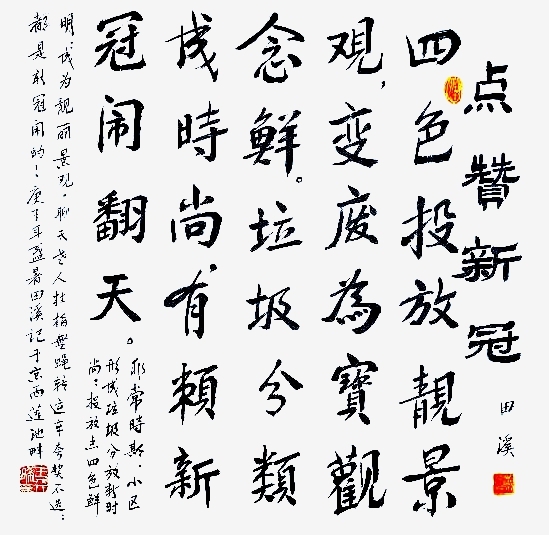 点贊新冠
田溪
四色投放靚景
观,变废為寶觀
念鮮。垃圾分類
成時尚有賴新
冠闹翻天。
非常時期,小区
形成垃圾分放新时
尚:投放点四色鲜
明,成为靓丽景观。聊天老人夸奖不迭:
都是新冠闹的!庚子年盛暑田溪记于京西莲池畔